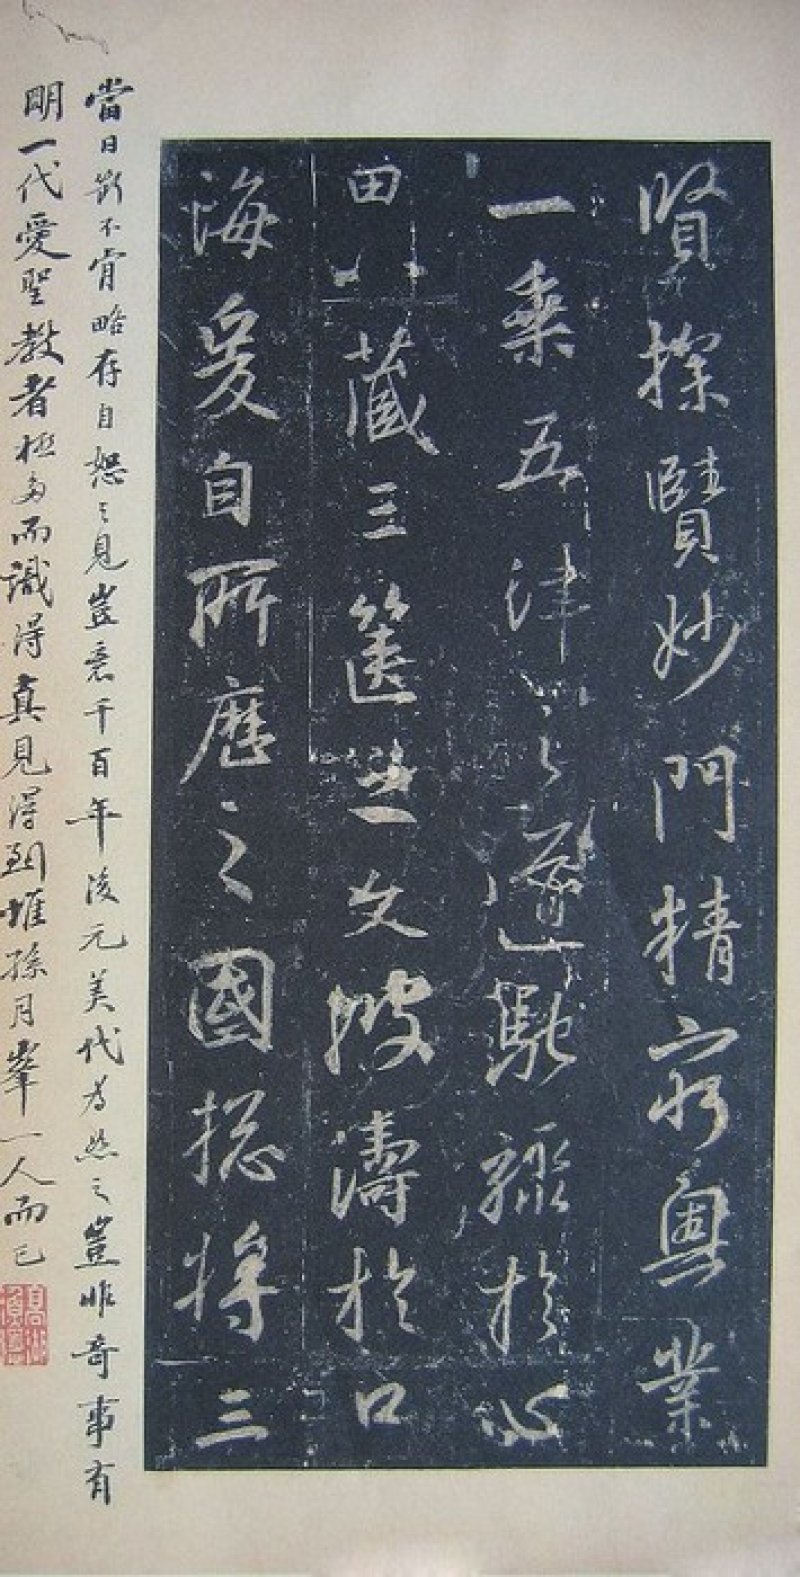 賢探賾妙門精窮奧業
一乘五津之道馳驟於心
田八藏三篋之文波濤於口
海爰自所歷之國揔將三
當日斷不肯略存自恕之見豈意千百年後元美代為然之豈非奇事有
明一代愛聖教者極多而識得真見得到惟孫月峯一人而已